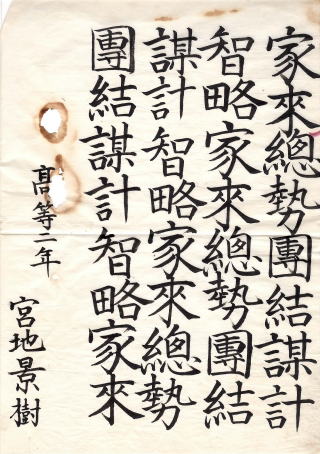 家來總勢團結謀計
智略家來總勢團結
謀計智略家來總勢
團結謀計智略家來
高等二年
宮地景樹